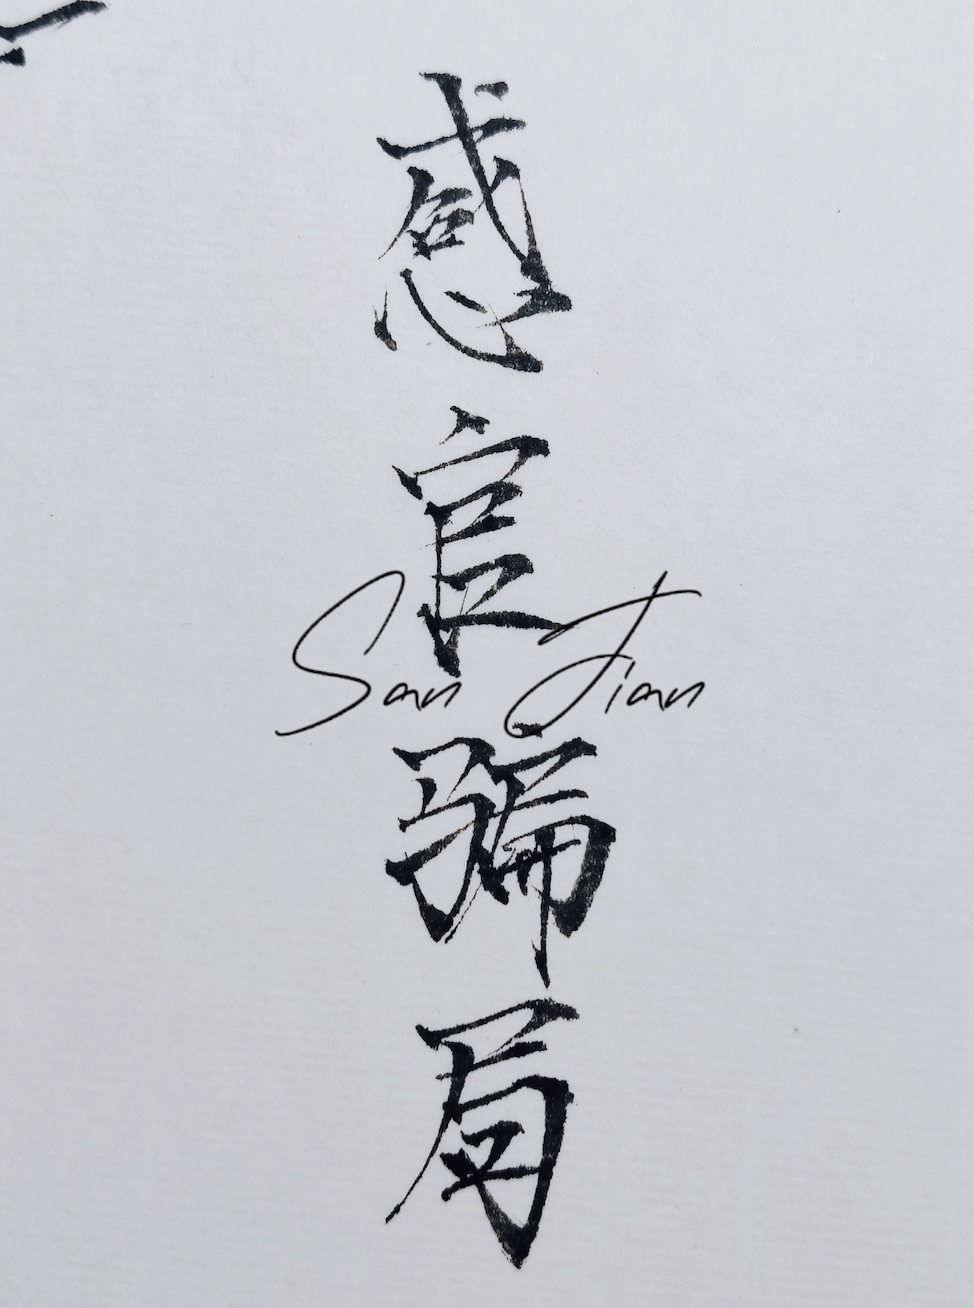 感官骗局
San Jian